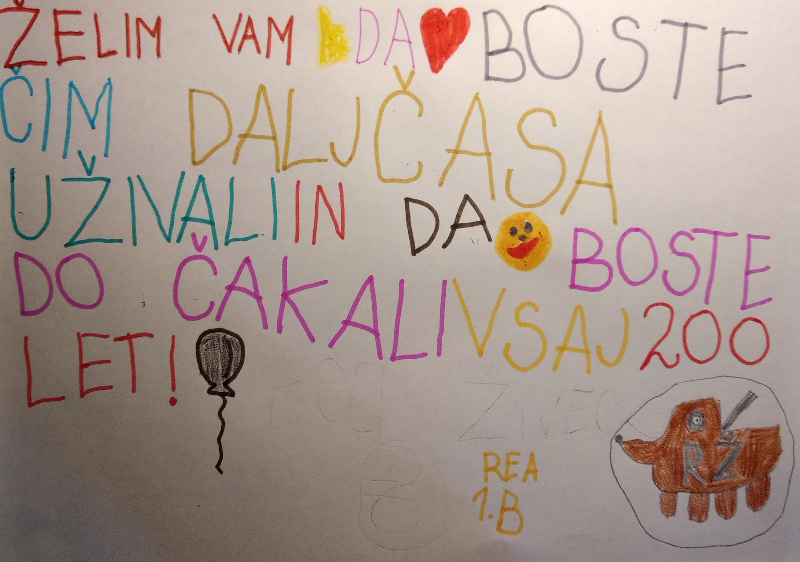 ŽELIM VAM DA BOSTE
ČIM DALJČASA
UŽIVALI IN DA BOSTE
DO ČAKALI VSAJ 200
LET!
REA
1.B
RŽ